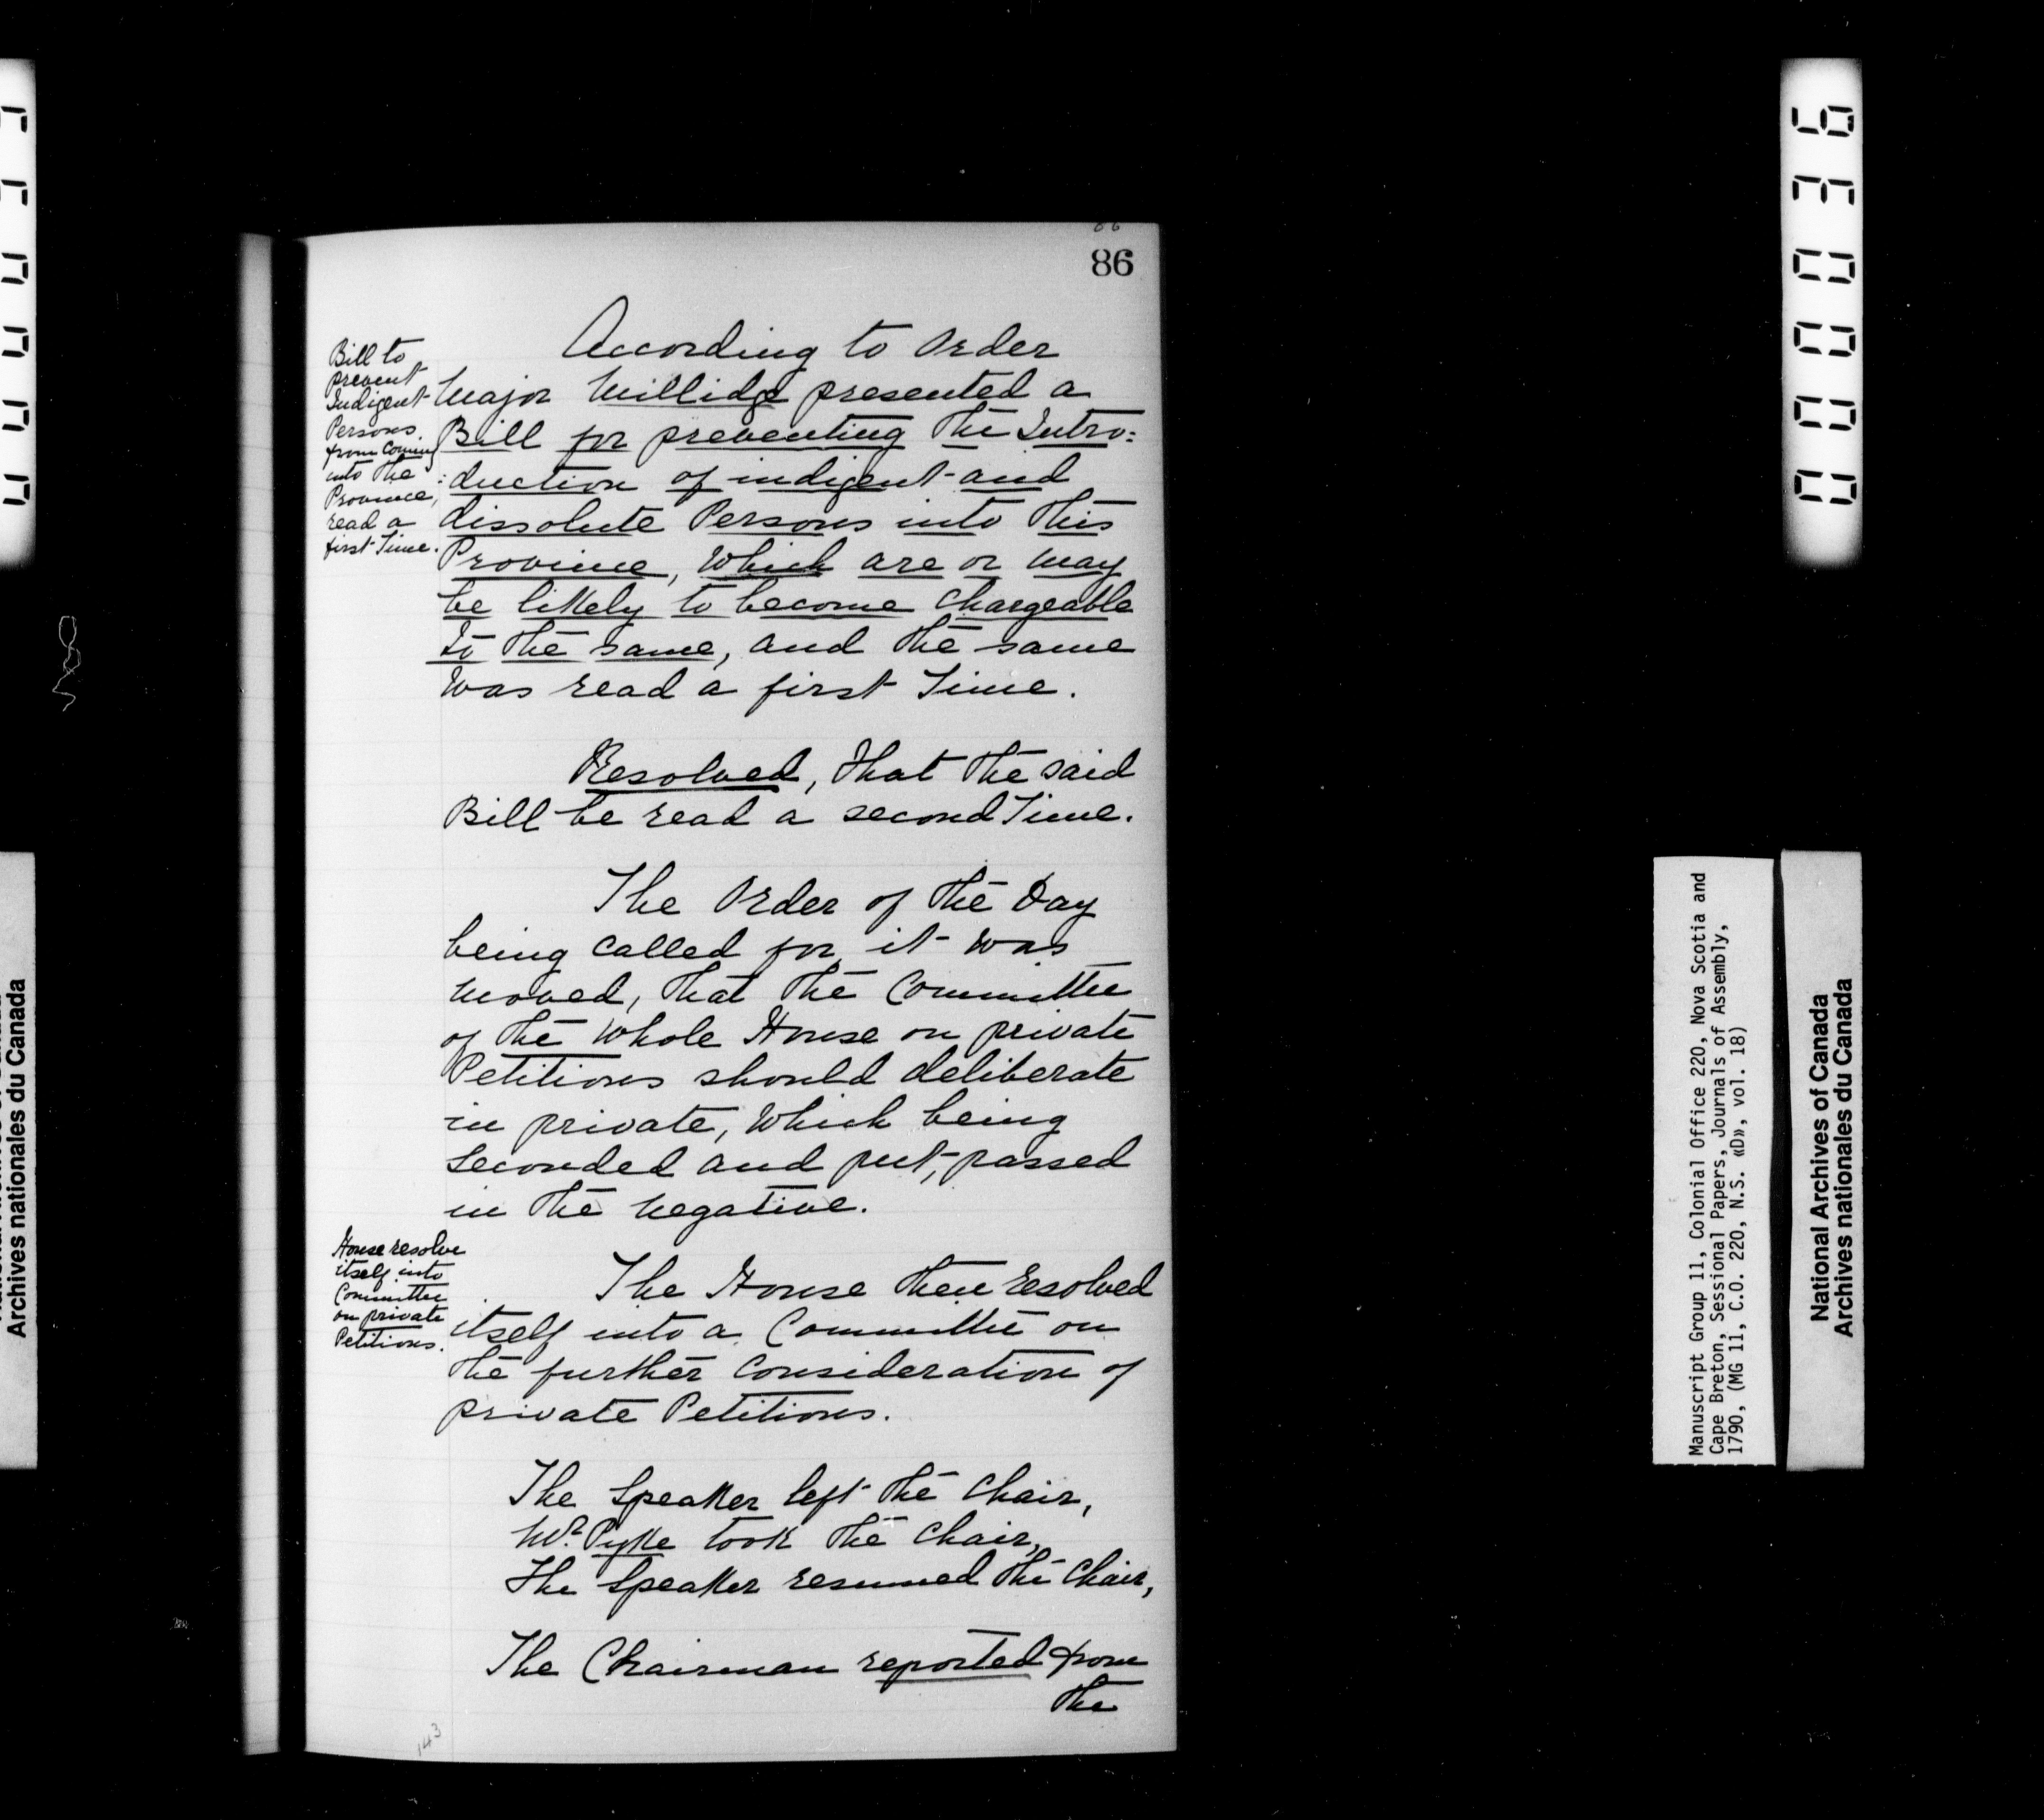 86
According to Order
Major Millidge presented a
Bill for preventing the Intro=
=duction of indigent and
dissolute Persons into this
Province, which are or may
be likely to become Chargeable
to the same, and the same
was read a first Time.
Bill to
prevent
Indigent
Persons
from Coming
into the
Province,
read a
first Time.
Resolved, that the said
Bill be read a second Time.
The Order of the Day
being called for, it was
moved, that the Committee
of the Whole House on private
Petitions should deliberate
in private, which being
seconded and put, passed
in the negative.
House resolve
itself into
Committee
on private
Petitions.
The House then resolved
itself into a Committee on
the further Consideration of
private Petitions.
The Speaker left the Chair,
Mr. Pyke took the Chair,
The Speaker resumed the Chair,
The Chairman reported from
the
143
Manuscript Group 11, Colonial Office 220, Nova Scotia and
Cape Breton, Sessional Papers, Journals of Assembly,
1790, (MG 11, C.O. 220, N.S. «D», vol. 18)
National Archives of Canada
Archives nationales du Canada
Archives nationales du Canada